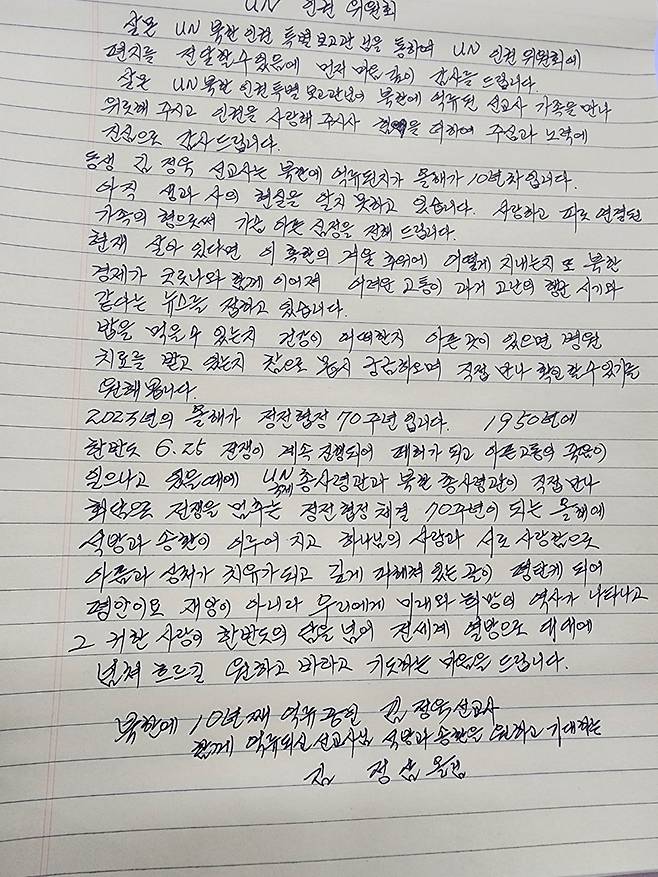 UN 인권 위원회
살몬 UN 북한 인권 특별보고관 님을 통하여 UN 인권 위원회에
편지를 전달할수 있음에 먼저 마음 깊이 감사를 드립니다.
살몬 UN 북한 인권특별보고관님이 북한에 억류된 선교사 가족을 만나
위로해 주시고 인권을 사랑해 주시사 힘을 더하여 주심과 노력에
진심으로 감사드립니다.
동생 김정욱 선교사는 북한에 억류된지가 올해가 10년차입니다.
아직 생과 사의 현실을 알지 못하고 있습니다. 사랑하고 피로 연결된
가족의 형으로써 가슴 아픈 심정을 전해 드립니다.
현재 살아 있다면 이 혹한의 겨울 추위에 어떻게 지내는지 또 북한
경제가 코로나와 함께 이어져 어려운 고통이 과거 고난의 행군 시기와
같다는 뉴스를 접하고 있습니다.
밥을 먹을수 있는지 건강이 어떠한지 아픈곳이 있으면 병원
치료를 받고 있는지 참으로 몹시 궁금하오며 직접 만나 확인할수있기를
원해 봅니다.
2023년의 올해가 정전협정 70주년 입니다. 1950년에
한반도 6.25 전쟁이 계속 진행되어 폐허가 되고 아픈고통의 죽음이
일으나고 있을때에 UN 총사령관과 북한 총사령관이 직접 만나
회담으로 전쟁을 멈추는 정전협정 체결 70주년이 되는 올해에
석방과 송환이 이루어 지고 하나님의 사랑과 서로 사랑함으로
아픔과 상처가 치유가되고 깊게 파해쳐 있는 곳이 평탄케 되어
평안이요 재앙이 아니라 우리에게 미래와 희망의 역사가 나타나고
그 귀한 사랑이 한반도의 땅을 넘어 전세계 열방으로 대대에
넘쳐 흐르길 원하고 바라고 기도하는 마음을 드립니다.
북한에 10년째 억류중인 김정욱선교사
함께 억류되신 선교사님 석방과 송환을 원하고 기대하는
김 정삼 올림